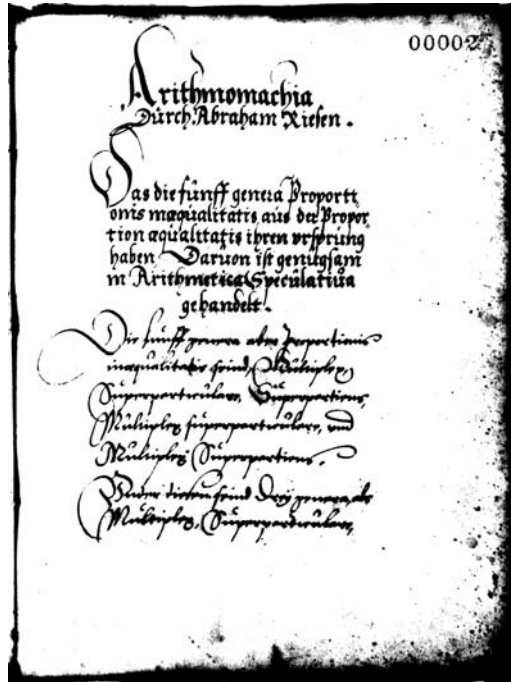 00002
Arithmomachia
Durch Abraham Riesen.
Das die fünff geneia Proporti
onis inæqualitatis aus der Propor
tion æqualitatis ihren vrsprung
haben Daruon ist genugsam
in Arithmetica Speculatiua
gehandelt.
Die fünff genera aber Proportionis
inæqualitatis seind, Multiplex,
Superparticulare, Superpartiens,
Multiplex superparticulare, vnd
Multiplex Superpartiens.
Vnder diesen seind Drey genera als
Multiplex, Superparticulare,